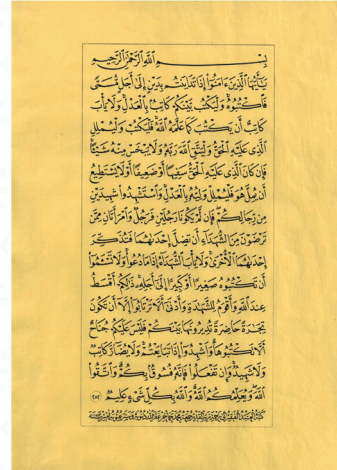 بِسْمِ اللَّهِ الرَّحْمَٰنِ الرَّحِيمِ
يَا أَيُّهَا الَّذِينَ ءَامَنُوا إِذَا تَدَايَنتُم بِدَيْنٍ إِلَىٰ أَجَلٍ مُّسَمًّى
فَاكْتُبُوهُ وَلْيَكْتُب بَّيْنَكُمْ كَاتِبٌ بِالْعَدْلِ وَلَا يَأْبَ
كَاتِبٌ أَن يَكْتُبَ كَمَا عَلَّمَهُ اللَّهُ فَلْيَكْتُبْ وَلْيُمْلِلِ
الَّذِي عَلَيْهِ الْحَقُّ وَلْيَتَّقِ اللَّهَ رَبَّهُ وَلَا يَبْخَسْ مِنْهُ شَيْئًا
فَإِن كَانَ الَّذِي عَلَيْهِ الْحَقُّ سَفِيهًا أَوْ ضَعِيفًا أَوْ لَا يَسْتَطِيعُ
أَن يُمِلَّ هُوَ فَلْيُمْلِلْ وَلِيُّهُ بِالْعَدْلِ وَاسْتَشْهِدُوا شَهِيدَيْنِ
مِن رِّجَالِكُمْ فَإِن لَّمْ يَكُونَا رَجُلَيْنِ فَرَجُلٌ وَامْرَأَتَانِ مِمَّن
تَرْضَوْنَ مِنَ الشُّهَدَاءِ أَن تَضِلَّ إِحْدَاهُمَا فَتُذَكِّرَ
إِحْدَاهُمَا الْأُخْرَىٰ وَلَا يَأْبَ الشُّهَدَاءُ إِذَا مَا دُعُوا وَلَا تَسْأَمُوا
أَن تَكْتُبُوهُ صَغِيرًا أَوْ كَبِيرًا إِلَىٰ أَجَلِهِ ذَٰلِكُمْ أَقْسَطُ
عِندَ اللَّهِ وَأَقْوَمُ لِلشَّهَادَةِ وَأَدْنَىٰ أَلَّا تَرْتَابُوا إِلَّا أَن تَكُونَ
تِجَارَةً حَاضِرَةً تُدِيرُونَهَا بَيْنَكُمْ فَلَيْسَ عَلَيْكُمْ جُنَاحٌ
أَلَّا تَكْتُبُوهَا وَأَشْهِدُوا إِذَا تَبَايَعْتُمْ وَلَا يُضَارَّ كَاتِبٌ
وَلَا شَهِيدٌ وَإِن تَفْعَلُوا فَإِنَّهُ فُسُوقٌ بِكُمْ وَاتَّقُوا
اللَّهَ وَيُعَلِّمُكُمُ اللَّهُ وَاللَّهُ بِكُلِّ شَيْءٍ عَلِيمٌ ٢٨٢